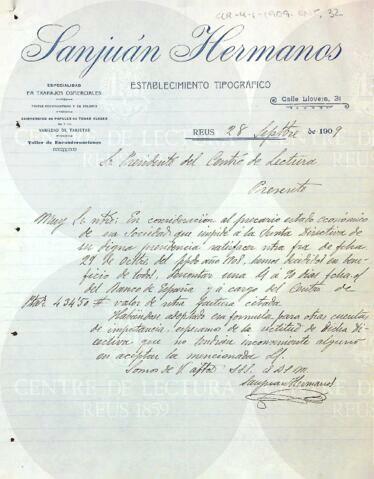 CLR-4-1-1909. ENT, 32
Sanjuán Hermanos
ESPECIALIDAD
EN TRABAJOS COMERCIALES
VARIEDAD DE TARJETAS
Taller de Encuadernaciones
ESTABLECIMIENTO TIPOGRÁFICO
Calle Llovera, 31
REUS 28 Septbre de 1909
Sr. Presidente del Centro de Lectura
Presente
Muy Sr. ntro: En consideración al precario estado económico
de esa Sociedad que impide á la Junta Directiva de
su digna presidencia satisfacer ntra fra de fecha
29 de Octbre del ppdo año 1908, hemos decidido en beneficio
de todos, á 20 días fecha
del Banco de España y á cargo del Centro de
Ptas 434'50 # valor de ntra factura citada.
Habiéndose adoptado esa formula para otras cuentas
de importancia, esperamos de la rectitud de Dicha Directiva
que no tendrán inconveniente alguno
en aceptar la mencionada
Somos de V. aftos. s.s.
Sanjuan Hermanos
CENTRE DE LECTURA
REUS 1859